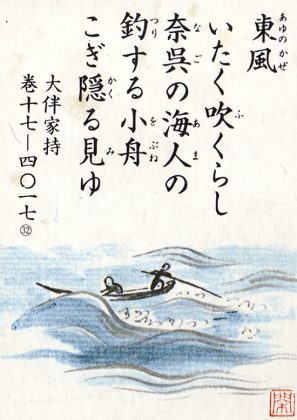 東風
あゆのかぜ
いたく吹くらし
ふ
奈呉の海人の
なご あま
釣する小舟
つり をぶね
こぎ隠る見ゆ
かく み
大伴家持
巻十七―四〇一七 ㉜